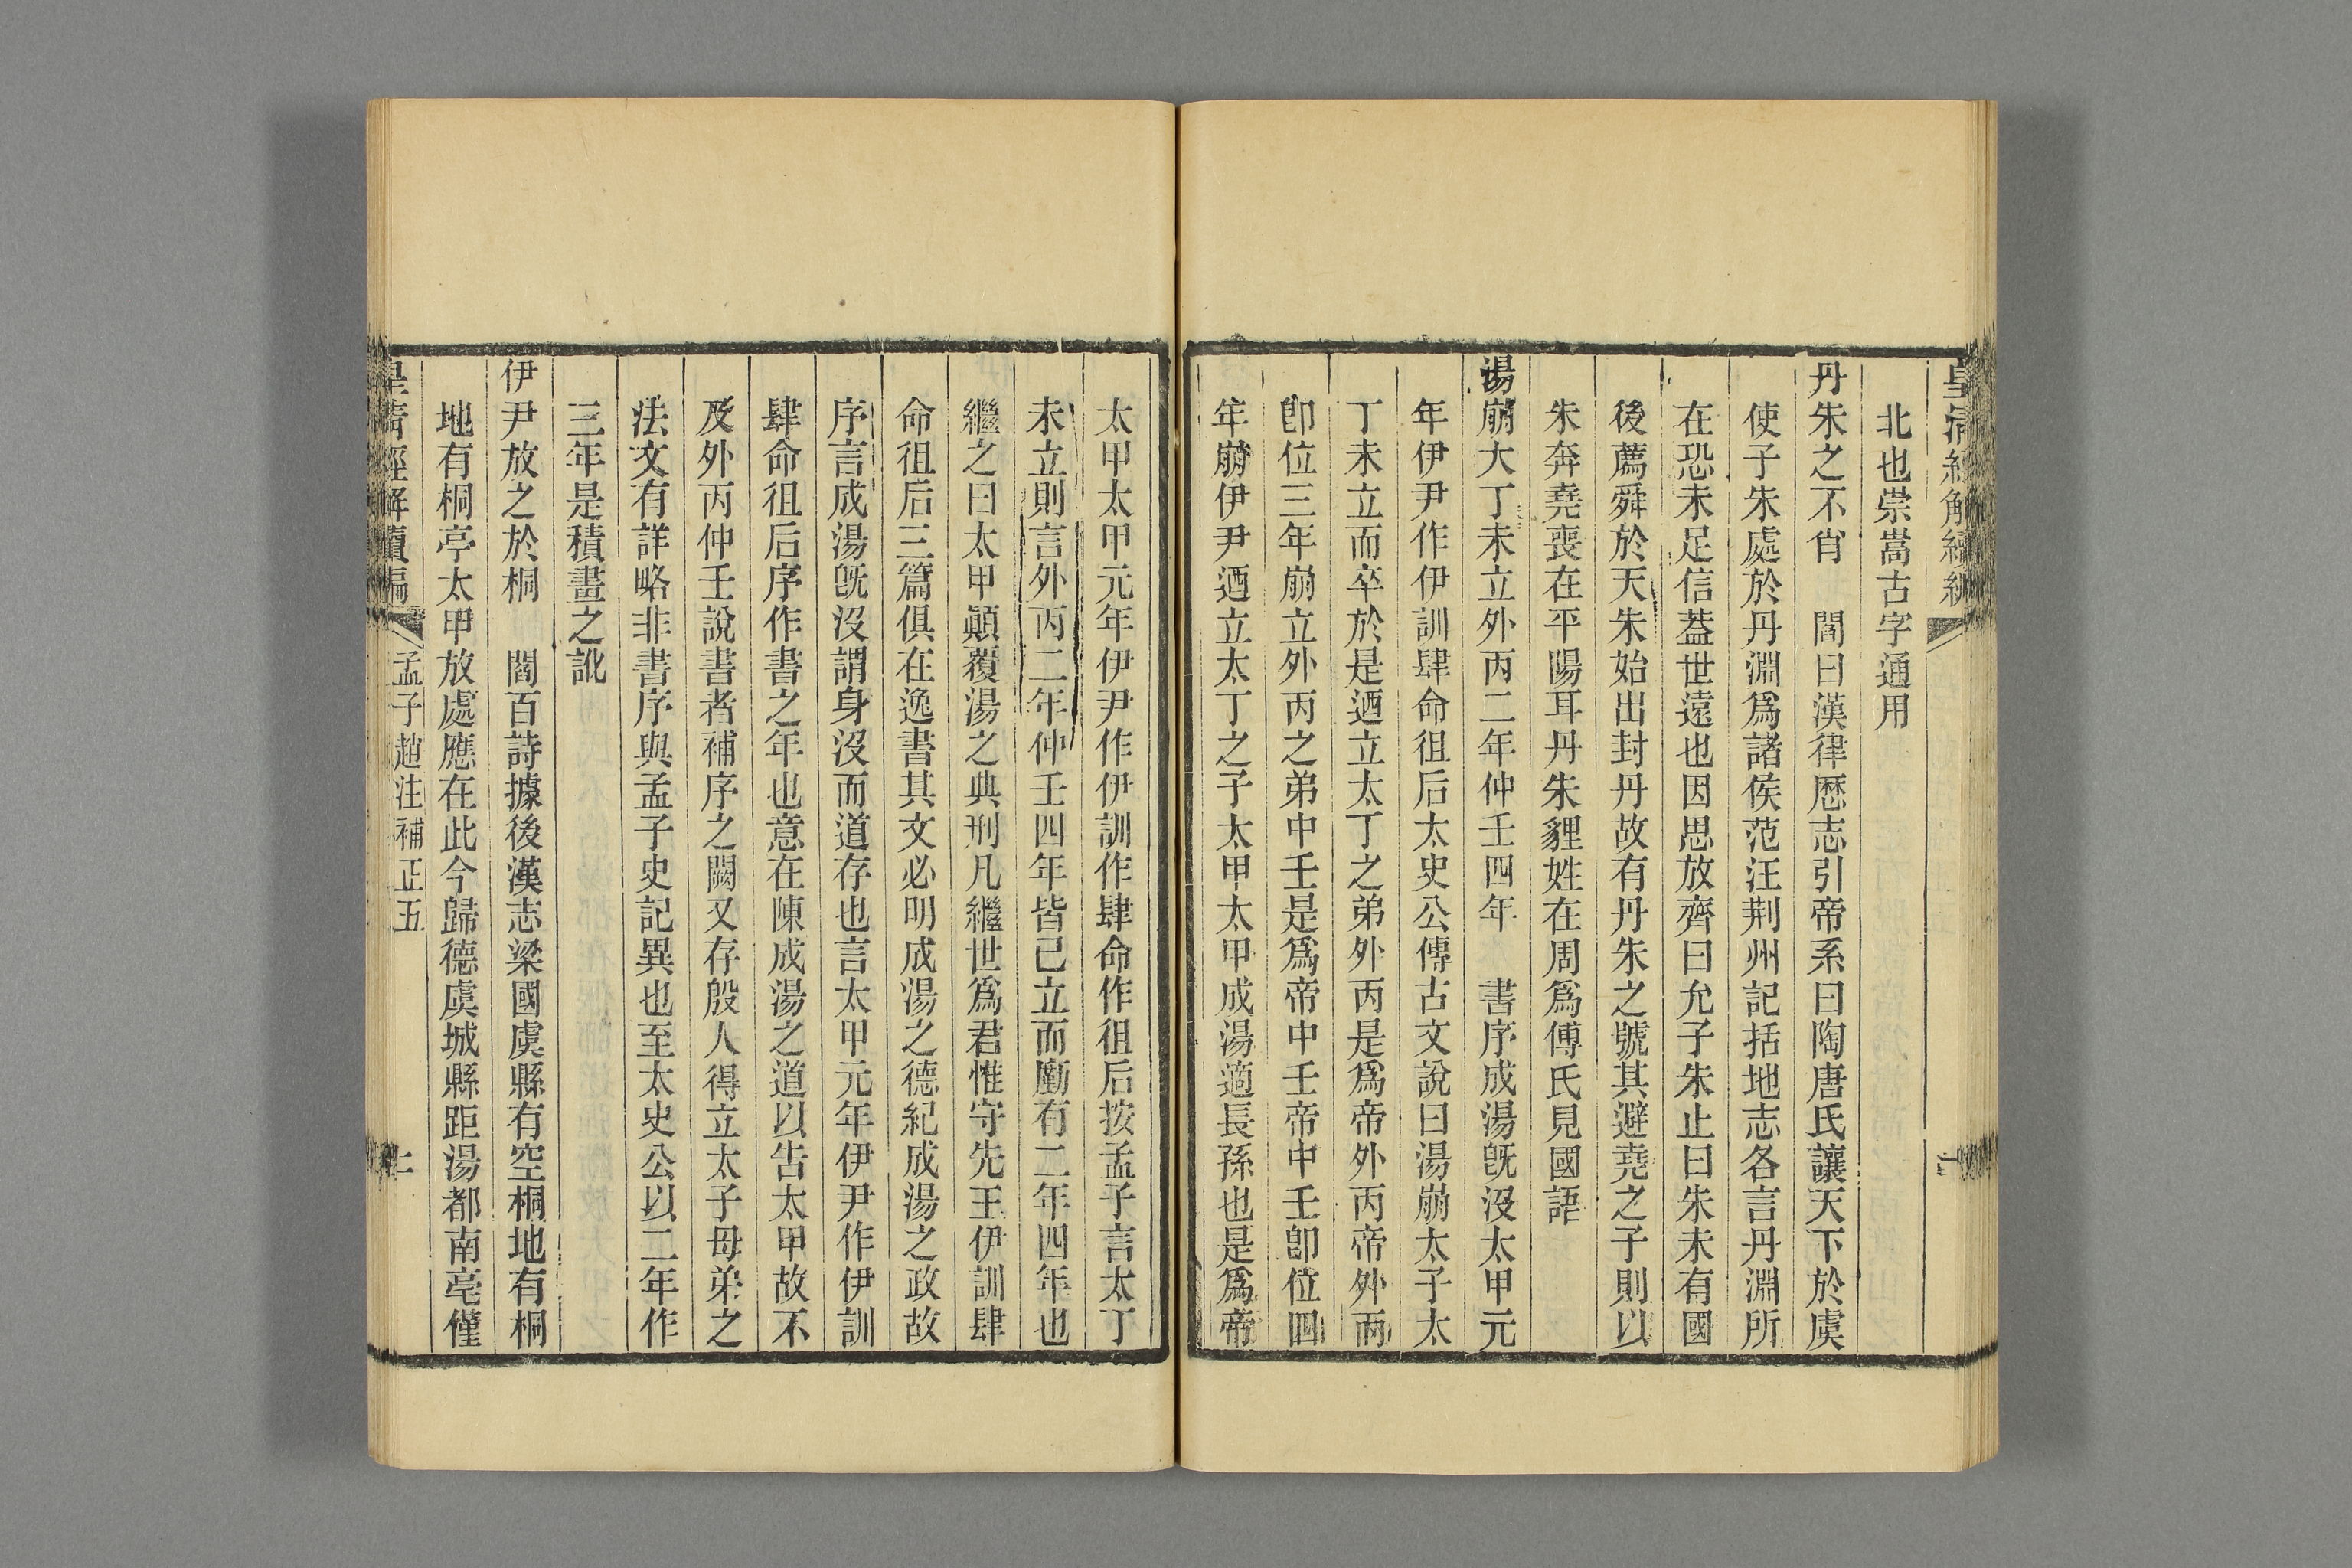 皇清經解續編
北也崇嵩古字通用
丹朱之不肖　閻曰漢律厯志引帝系曰陶唐氏讓天下於虞
使子朱處於丹淵爲諸侯范汪荆州記括地志各言丹淵所
在恐未足信葢世遠也因思放齊曰允子朱止曰朱未有國
後薦舜於天朱始出封丹故有丹朱之號其避堯之子則以
朱奔堯喪在平陽耳丹朱貍姓在周爲傅氏見國語
湯崩大丁未立外丙二年仲壬四年　書序成湯旣沒太甲元
年伊尹作伊訓肆命徂后太史公傳古文說曰湯崩太子太
丁未立而卒於是迺立太丁之弟外丙是爲帝外丙帝外丙
卽位三年崩立外丙之弟中壬是爲帝中壬帝中壬卽位四
年崩伊尹迺立太丁之子太甲太甲成湯適長孫也是爲帝
太甲太甲元年伊尹作伊訓作肆命作徂后按孟子言太丁
未立則言外丙二年仲壬四年皆已立而廟有二年四年也
繼之曰太甲顚覆湯之典刑凡繼世爲君惟守先王伊訓肆
命徂后三篇俱在逸書其文必明成湯之德紀成湯之政故
序言成湯旣沒謂身沒而道存也言太甲元年伊尹作伊訓
肆命徂后序作書之年也意在陳成湯之道以告太甲故不
及外丙仲壬說書者補序之闕又存殷人得立太子母弟之
法文有詳略非書序與孟子史記異也至太史公以二年作
三年是積畫之訛
伊尹放之於桐　閻百詩據後漢志梁國虞縣有空桐地有桐
地有桐亭太甲放處應在此今歸德虞城縣距湯都南亳僅
皇清經解續編　孟子趙注補正五　二